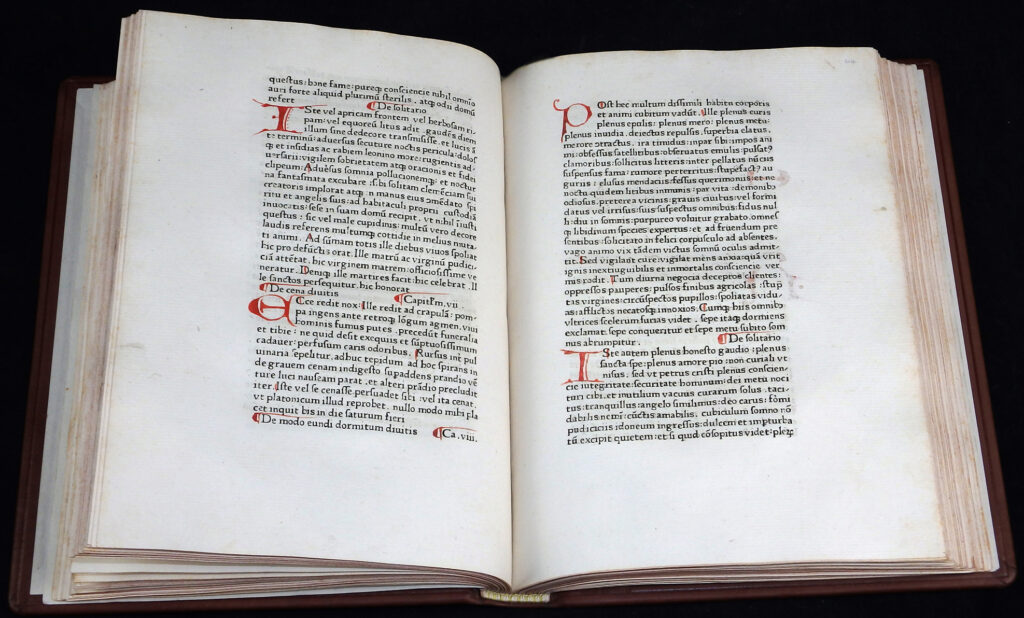 questus: bone fame: pureq; consciencie nihil omnio
auri forte aliquid plurimū sterilis. atq; odii domū
refert ¶De solitario
Iste vel apricam frontem vel herbosam ri
pam: vel equoreū litus adit. gaudēs diem
illum sine dedecore transmisisse. et lucis ā
te terminū: adversus secuture noctis pericula: dolos
q; et insidias ac rabiem leonino more: rugientis ad
versarii: vigilem sobrietatem atq; oracionis et fidei
clipeum: Adversus somnia pollucionemq; et noctur
na fantasmata excubare sibi solitam clemēciam sui
creatoris implorat atq; in manus eius cōmēdato spi
ritu et angelis suis: ad habitaculi proprii custodiā
invocatis: sese in suam domū recipit. vt nihil iniusti
questus: sic vel male cupidinis: multū vero decore
laudis referens multumq; cottidie in melius muta
ti animi. Ad sūmam totis ille diebus vivos spoliat
hic pro defūctis orat. Ille matrū ac virginū pudici
ciā attētat. hic virginem matrem officiosissime ve
neratur. Deniq; ille martires facit: hic celebrat. Il
le sanctos persequitur. hic honorat
¶De cena divitis ¶Capitlm. vii.
Ecce redit nox: Ille redit ad crapulā: pom
pa ingens ante retroq; lōgum agmen. vivi
hominis fumus putes. precedūt funeralia
et tibie: ne quid desit exequiis et sūptuosissimum
cadaver: perfusum caris odoribus. Rursus int pul
vinaria sepelitur. adhuc tepidum ad hoc spirans in
de gravem cenam indigesto supaddens prandio vē
ture luci nauseam parat. et alteri prādio precludit
iter. Iste vel se cenasse. persuadet sibi: vel ita cenat.
vt platonicum illud reprobet. nullo modo mihi pla
cet inquit bis in die saturum fieri
¶De modo eundi dormitum divitis ¶Ca. viii.
Post hec multum dissimili habito corporis
et animi cubitum vadūt. Ille plenus curis
plenus epulis: plenus mero: plenus metu:
plenus invidia. deiectus repulsis. superbia elatus.
merore cōtractus. ira timidus: inpar sibi: impos ani
mi: obsessus satellitibus: observatus emulis: pulsat9
clamoribus: sollicitus litteris: inter pellatus nūciis
suspensus fama: rumore perterritus: stupefact9 au
guriis: elusus mendaciis: fessus querimoniis. et ne
noctu quidem litibus inmunis: par vita: demonibo
odiosus. preterea vicinis: gravis civibus: vel formi
datus vel irrisus: suis suspectus omnibus: fidus nul
li: diu in somnis: purpureo volvitur grabato. omnes
q; libidinum species expertus: et ad fruendum pre
sentibus: solicitato in felici corpusculo ad absentes.
vago animo vix tādem victus somnū oculis admit
tit. Sed vigilāt cure: vigilat mens anxia: quā virit
ignis inextinguibilis et inmortalis consciencie ver
mis rodit. Tum diurna negocia deceptos clientes:
oppressos pauperes: pulsos finibus agricolas: stup
tas virgines: circūspectos pupillos: spoliatas vidu
as: afflictos necatosq; inoxios. Cumq; hiis omnibo
vltrices scelerum furias videt. sepe itaq; dormiens
exclamat. sepe conqueritur et sepe metu subito som
nus abrumpitur. ¶De solitario
Iste autem plenus honesto gaudio: plenus
sancta spe: plenus amore pio: non curiali vt
nisus. sed vt petrus cristi plenus conscien
cie integritate: securitate hominum: dei metu noci
turi cibi. et mutilium vacuus curarum solus. taci
tus: tranquillus: angelo similimus: deo carus: fōmi
dabilis nemī: cūctis amabilis. cubiculum somno nō
pudiciciis: idoneum ingressus: dulcem et impturba
tū excipit quietem: et si quid cōsopitus videt: plez